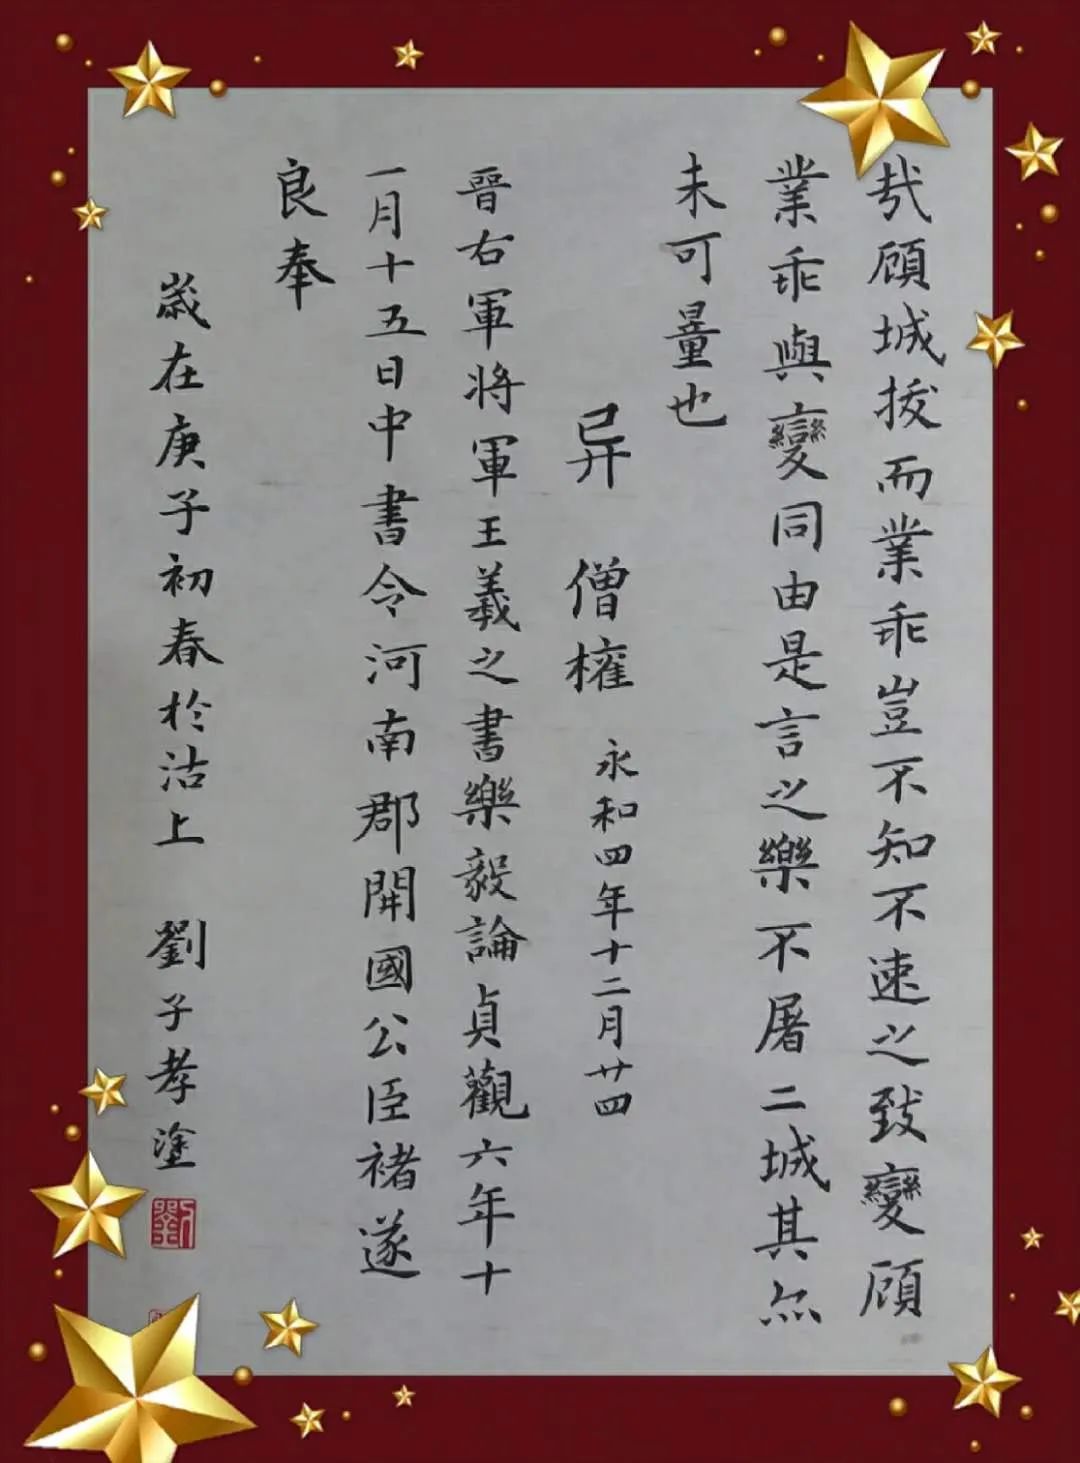 哉頋城拔而業乖豈不知不速之致變頋
業乖與變同由是言之樂不屠二城其亦
未可量也
异 僧權 永和四年十二月廿四
晉右軍將軍王羲之書樂毅論貞觀六年十
一月十五日中書令河南郡開國公臣褚遂
良奉
歲在庚子初春於沽上 劉子孝塗
劉